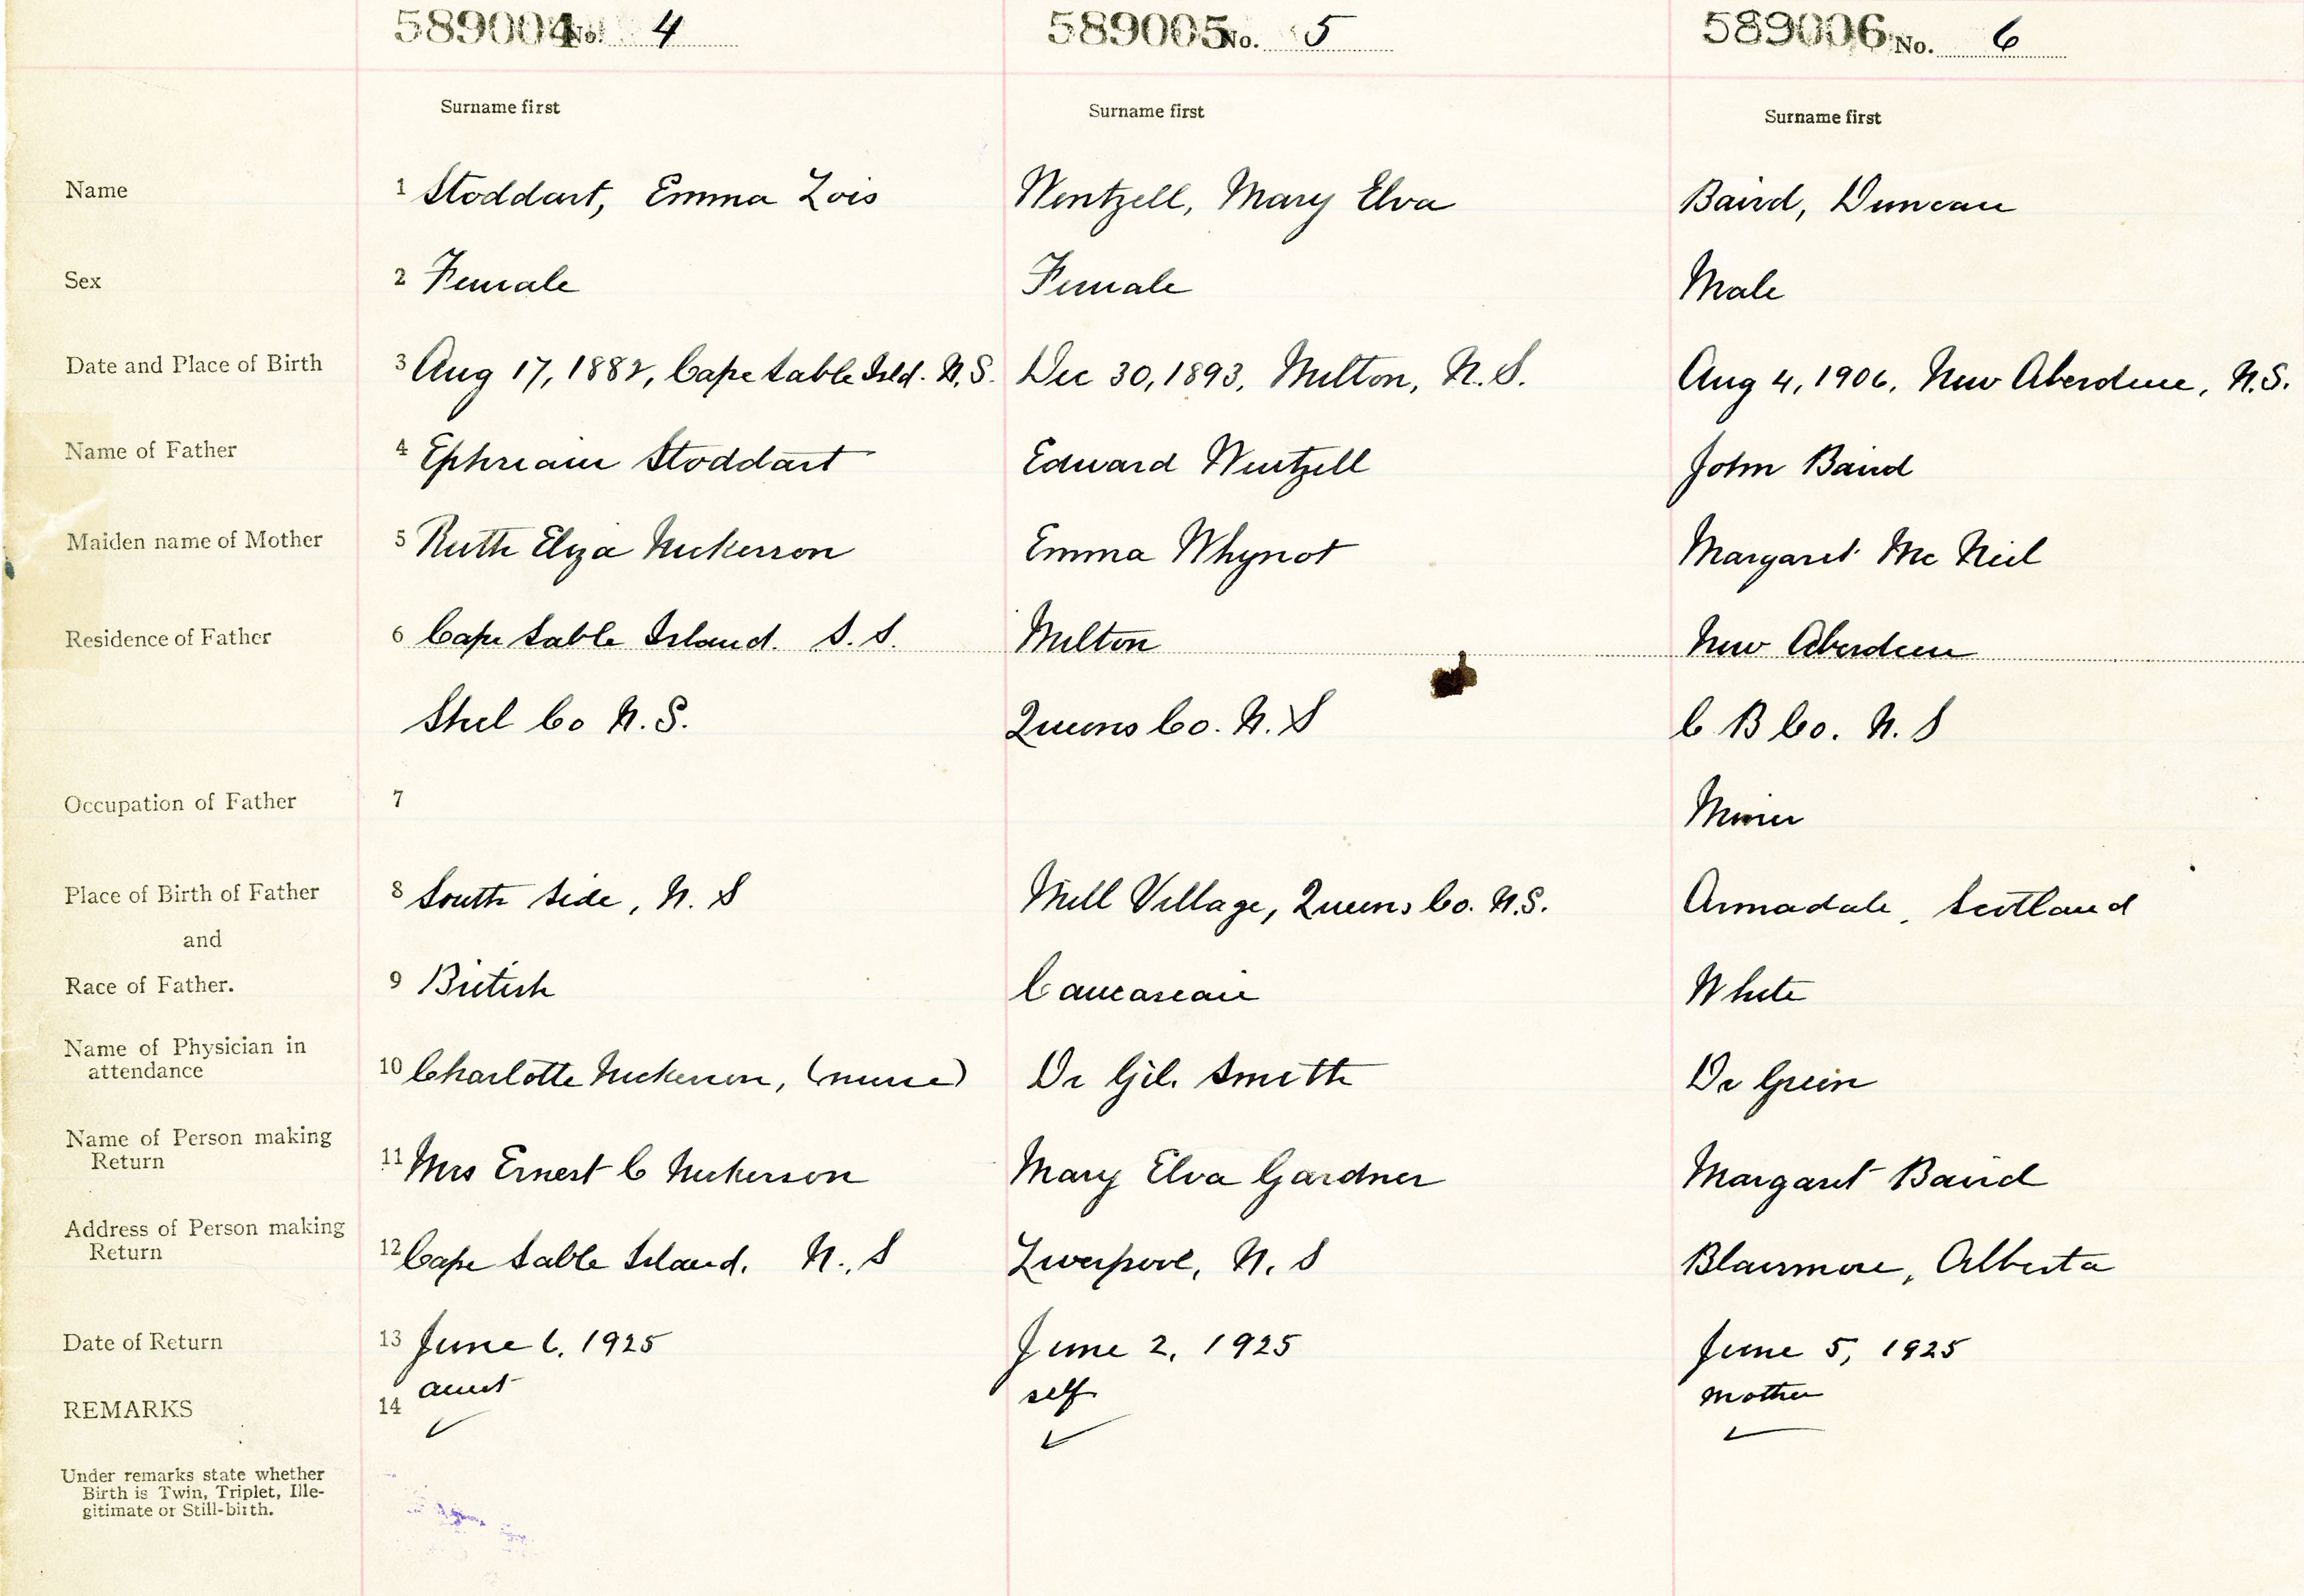 589004 No. 4 589005 No. 5 589006 No. 6
Surname first Surname first Surname first
Name 1 Stoddart, Emma Lois Wentzell, Mary Elva Baird, Duncan
Sex 2 Female Female Male
Date and Place of Birth 3 Aug 17, 1882, Cape Sable Isld. N.S. Dec 30, 1893, Milton, N.S. Aug 4, 1906, New Aberdeen, N.S.
Name of Father 4 Ephriam Stoddart Edward Wentzell John Baird
Maiden name of Mother 5 Ruth Eliza Nickerson Emma Whynot Margaret Mc Neil
Residence of Father 6 Cape Sable Island. S.S. Milton New Aberdeen
Shel Co N.S. Queens Co. N.S C B Co. N.S
Occupation of Father 7 Miner
Place of Birth of Father 8 South Side, N.S Mill Village, Queens Co. N.S. Armadale, Scotland
and
Race of Father. 9 British Caucasean White
Name of Physician in
attendance 10 Charlotte Nickerson, (nurse) Dr Gil. Smith Dr Green
Name of Person making
Return 11 Mrs Ernest C Nickerson Mary Elva Gardner Margaret Baird
Address of Person making
Return 12 Cape Sable Island. N.S Liverpool, N.S Blairmore, Alberta
Date of Return 13 June 6, 1925 June 2, 1925 June 5, 1925
aunt self mother
REMARKS 14
Under remarks state whether
Birth is Twin, Triplet, Ille-
gitimate or Still-birth.